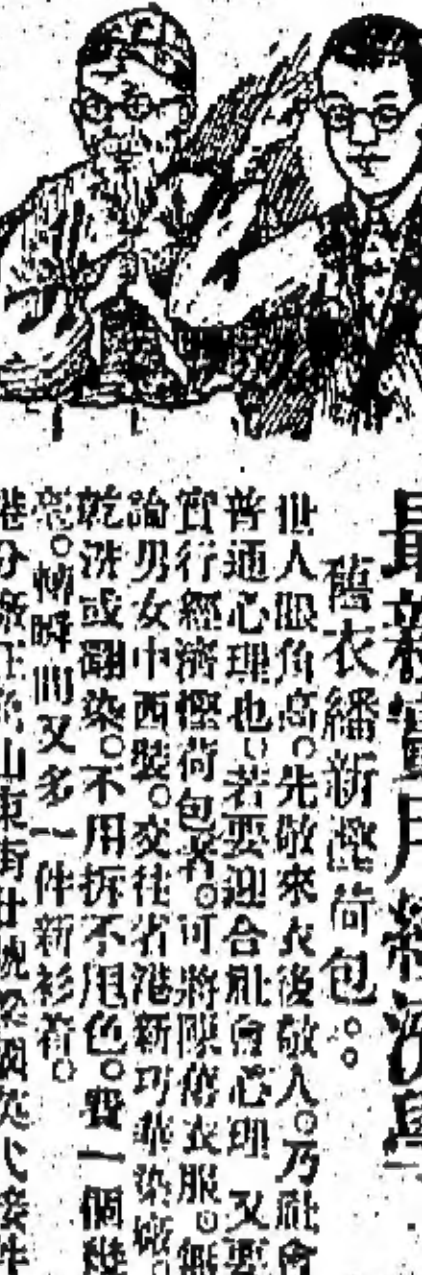 最新實用經濟學
舊衣繙新慳荷包。。
世人眼角高。先敬來衣後敬人。乃社會
普通心理也。若要迎合社會心理 又要
實行經濟慳荷包者。可將陳舊衣服。無
論男女中西裝。交往省港新巧華染廠。
乾洗或翻染。不用拆不甩色。費一個幾
毫。轉瞬間又多一件新衫着。
港分廠在 山東街廿號